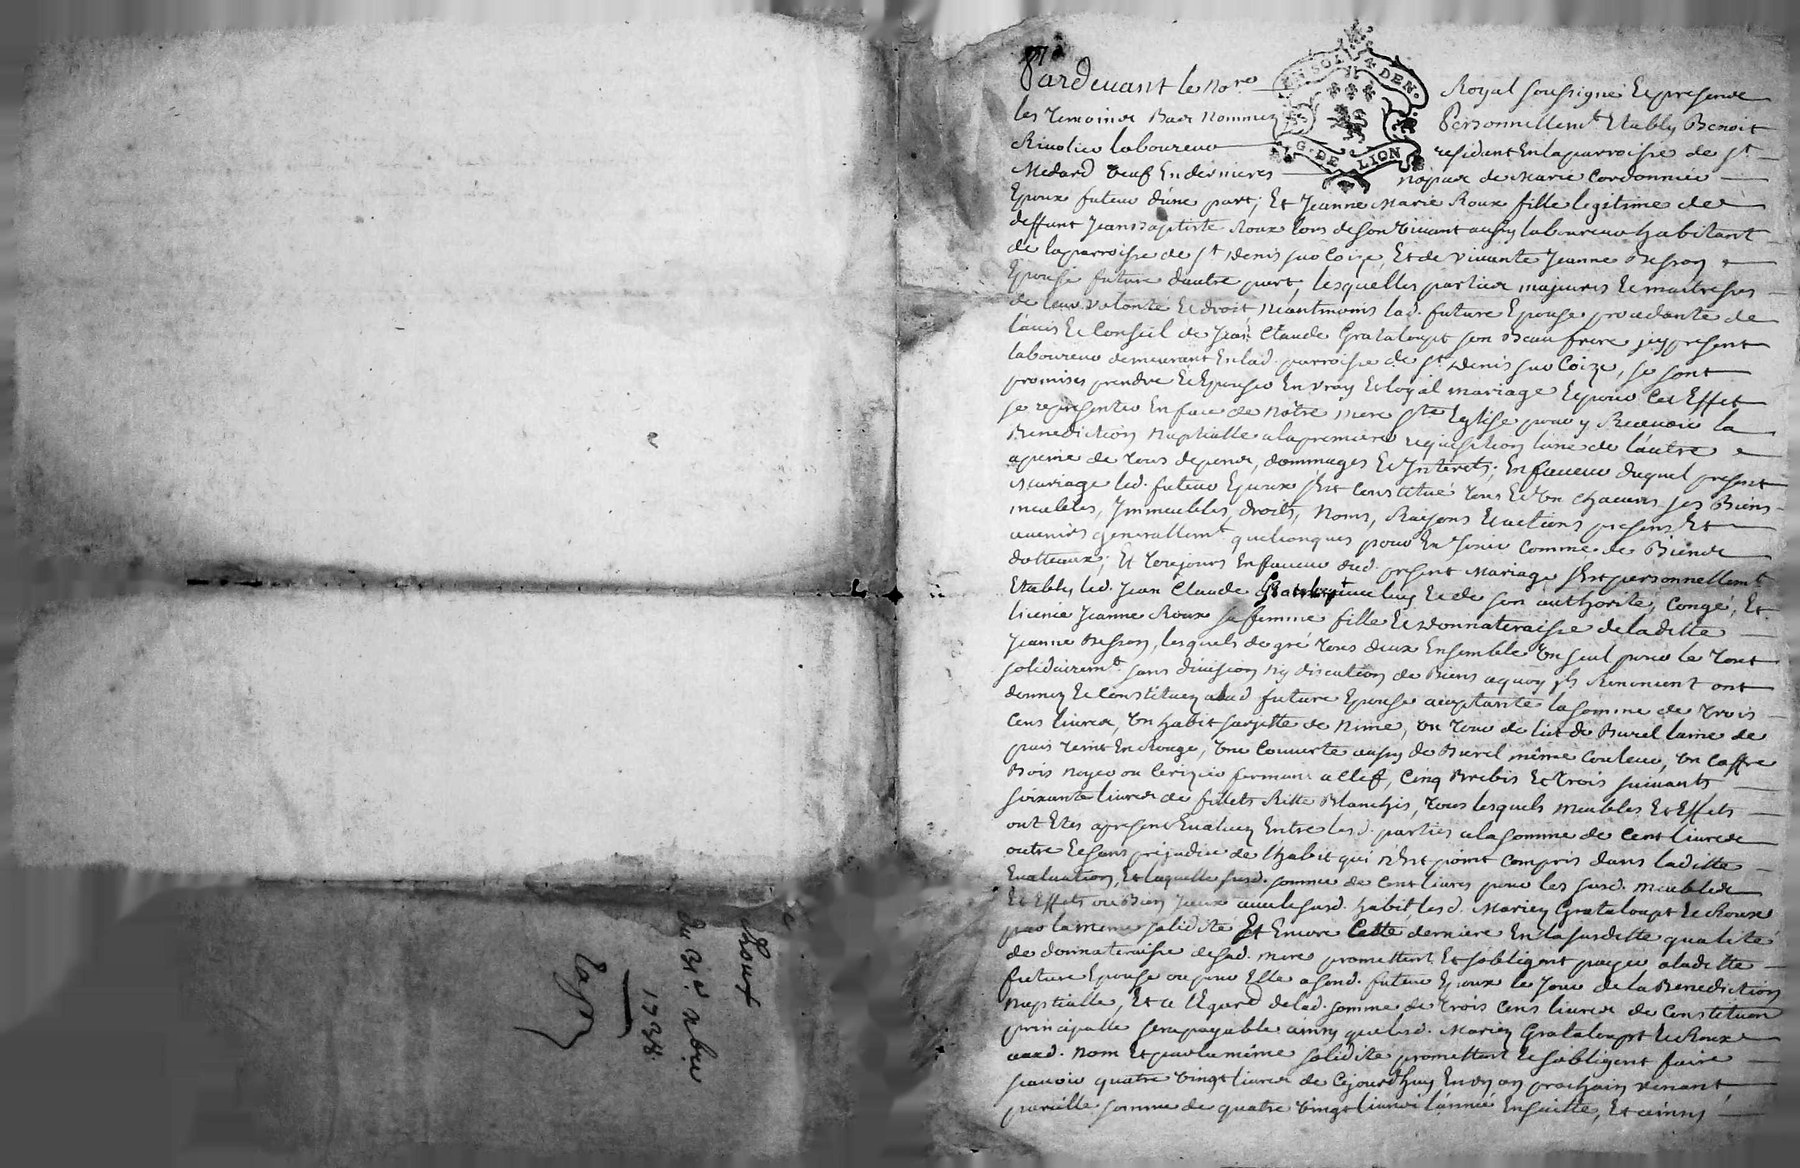 Pardevant le No.re Royal soussigné Et presence
les Temoins Bas Nommez Personnellem.t Etably Benoit
Rivolier laboureur residant En la parroisse de S.t
Medard veuf En dernieres Nopces de Marie Cordonnier
Epoux futeur d'une part; Et Jeanne Marie Roux fille legitime de
deffunt Jean Baptiste Roux lors de son vivant aussy laboureur habitant
de la parroisse de S.t Denis sur Coize, Et de vivante Jeanne Besson
Epouse future d'autre part, lesquelles parties majeures Et maitresses
de leur volonté Et droit, Neantmoins lad. future Epouse procedante de
l'avis Et Conseil de Jean Claude Grataloupt son Beau frere icy present
laboureur demeurant En lad. parroisse de S.t Denis sur Coize, se sont
promises prendre Et Epouser En vray Et loyal mariage Et pour Cet Effet
se representer En face de Nôtre mere S.te Eglise pour y Recevoir la
Benediction Nuptialle a la premiere requisition l'une de l'autre
a peine de Tous depens, dommages Et Interets; En faveur duquel present
Mariage led. futeur Epoux s'Est Constitué Tous Et Un Chacuns ses Biens
meubles, Immeubles, droits, Noms, Raisons Et actions presens Et
avenirs generallem.t quelconques pour En Jouir Comme de Biens
dotteaux; Et Toujours En faveur dud. present Mariage s'Est personnellem.t
Etably led. Jean Claude Grataloupt avec luy Et de son authorité, Congé, Et
licence Jeanne Roux sa femme fille Et Donnateraisse de laditte
Jeanne Besson, lesquels de gré Tous deux Ensemble Un seul pour le Tout
solidairem.t sans division ny discution de Biens a quoy ils Renoncent ont
donnez Et Constituez a lad. future Epouse acceptante la somme de Trois
Cens livres, Un habit sargette de Nime, Un Tour de lit de Burel laine de
païs Teint En Rouge, Une Couverte aussy de Burel même Couleur, Un Coffre
Bois Noyer ou Cerizier fermant a Clef, Cinq Brebis Et Trois suivants
soixante livres de fillets Ritte Blanchis, Tous lesquels Meubles Et Effets
ont Etes a present Evaluez Entre lesd. parties a la somme de Cent livres
outre Et sans prejudice de l'habit qui n'Est point Compris dans laditte
Evaluation, Et laquelle susd. somme de Cent livres pour les susd. Meubles
Et Effets ou Bien Iceux avec le susd. habit, lesd. Mariez Grataloupt Et Roux
par la meme solidité Et Encore Cette derniere En la susditte qualité
de donnateraisse de sad. mere promettent Et s'obligent payer a laditte
future Epouse ou pour Elle a sond. futeur Epoux le Jour de la Benediction
Nuptialle, Et a l'Egard de lad. somme de Trois Cens livres de Constitution
principalle sera payable ainsy que lesd. Mariez Grataloupt Et Roux
aud. nom Et par la même solidité promettent Et s'obligent faire
sçavoir quatre vingt livres de Cejourd'huy En Un an prochain venant
pareille somme de quatre vingt livres l'année Ensuitte, Et ainsy
Du 31.e xbre
1738